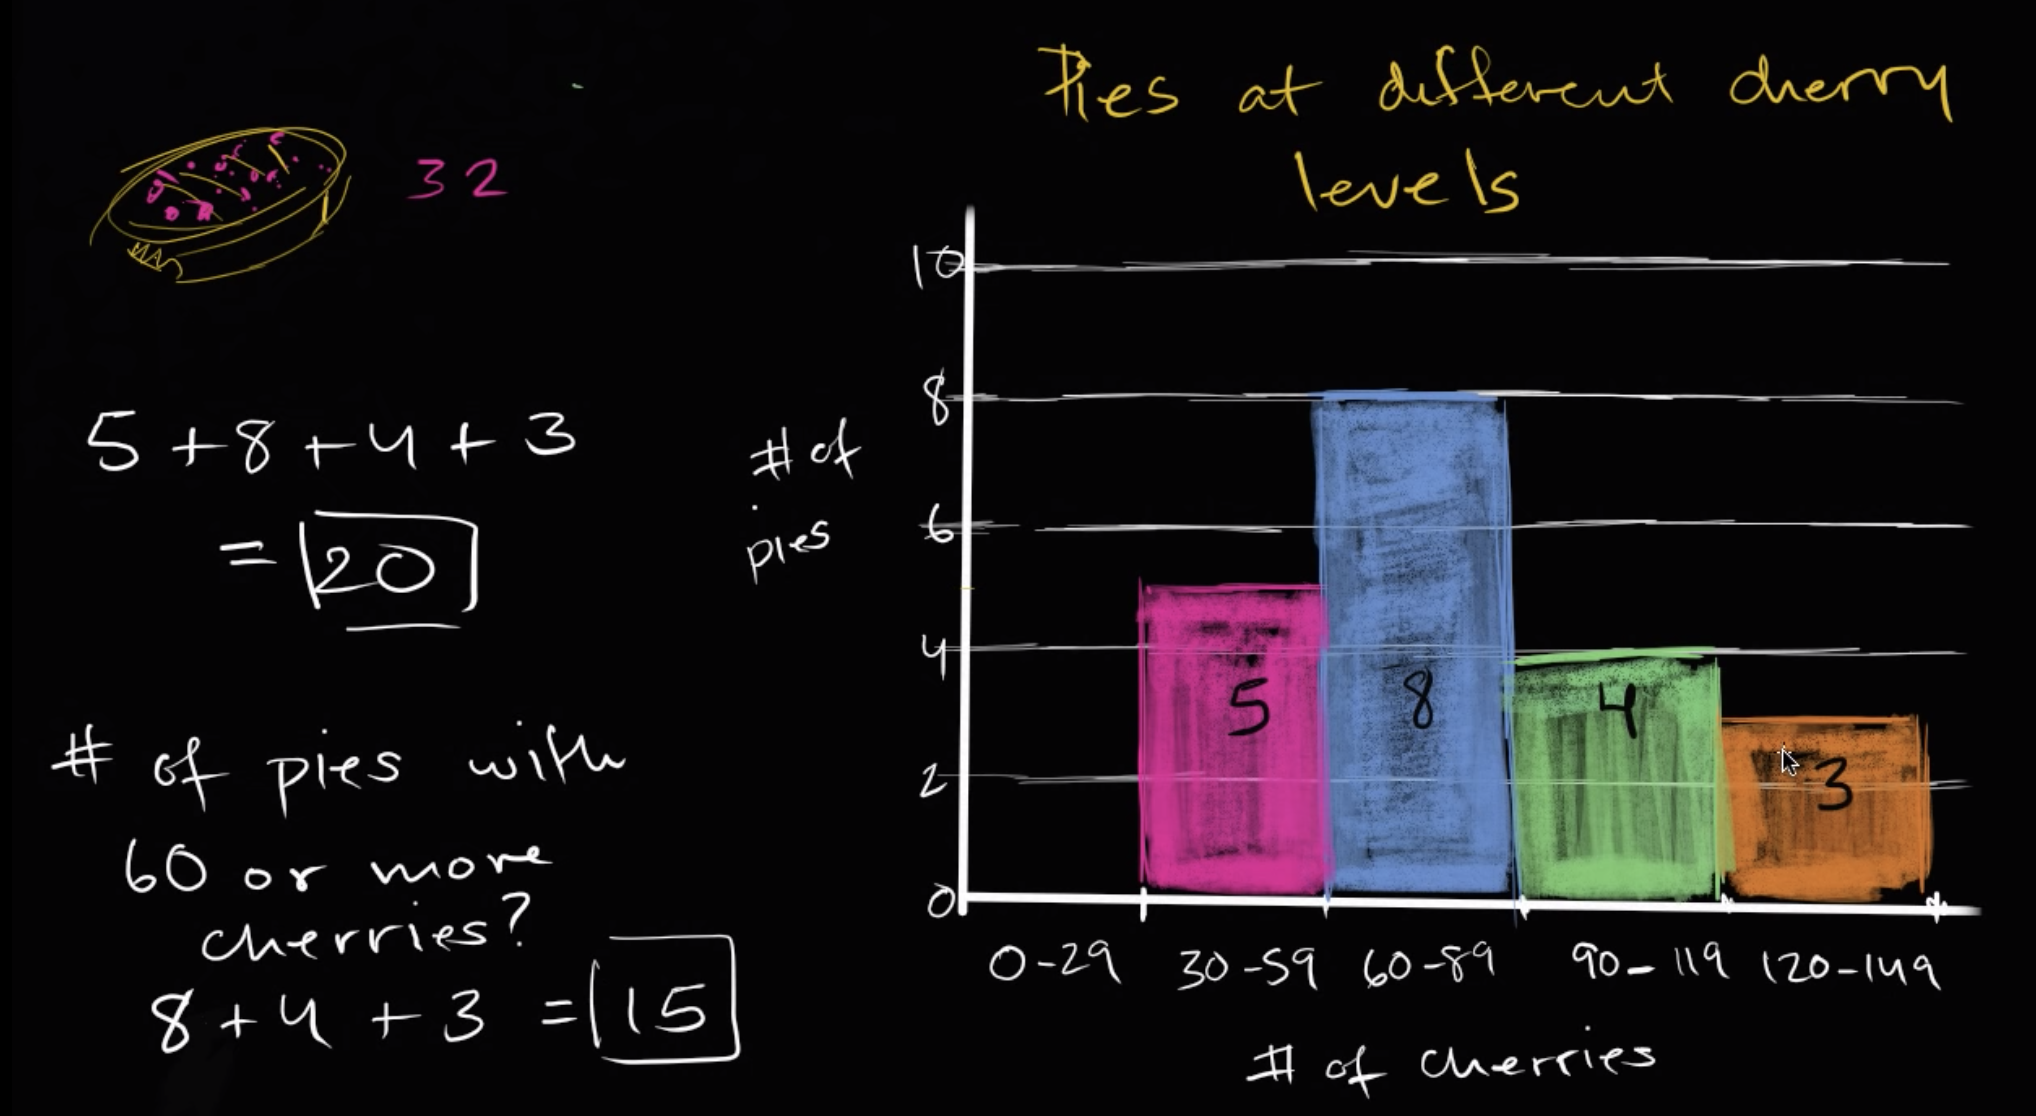 Pies at different cherry
levels
32
5 + 8 + 4 + 3
= 20
# of pies with
60 or more
cherries?
8 + 4 + 3 = 15
# of
pies
10
8
6
4
2
0
5
8
4
3
0-29 30-59 60-89 90-119 120-149
# of cherries